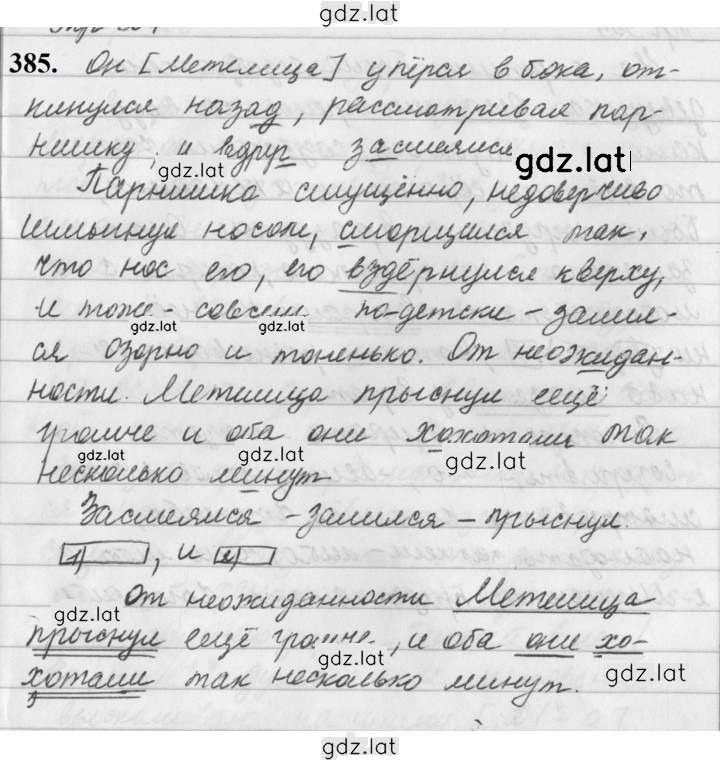 gdz.lat
385. Он [Метелица] упёрся в бока, от-
кинулся назад, рассматривая пар-
нишку, и вдруг засмеялся
gdz.lat
Парнишка смущённо, недоверчиво
шмыгнул носом, сморщился так,
что нос его, его вздёрнулся кверху,
и тоже - совсем по-детски - залил-
gdz.lat gdz.lat
ся озорно и тоненько. От неожидан-
ности. Метелица прыснул ещё
громче и оба они хохотали так
gdz.lat gdz.lat gdz.lat
несколько минут
Засмеялся - залился - прыснул.
1) , и 2)
От неожиданности Метелица
gdz.lat
прыснул ещё , и оба они хо-
gdz.lat gdz.lat
хотали так несколько минут.
gdz.lat